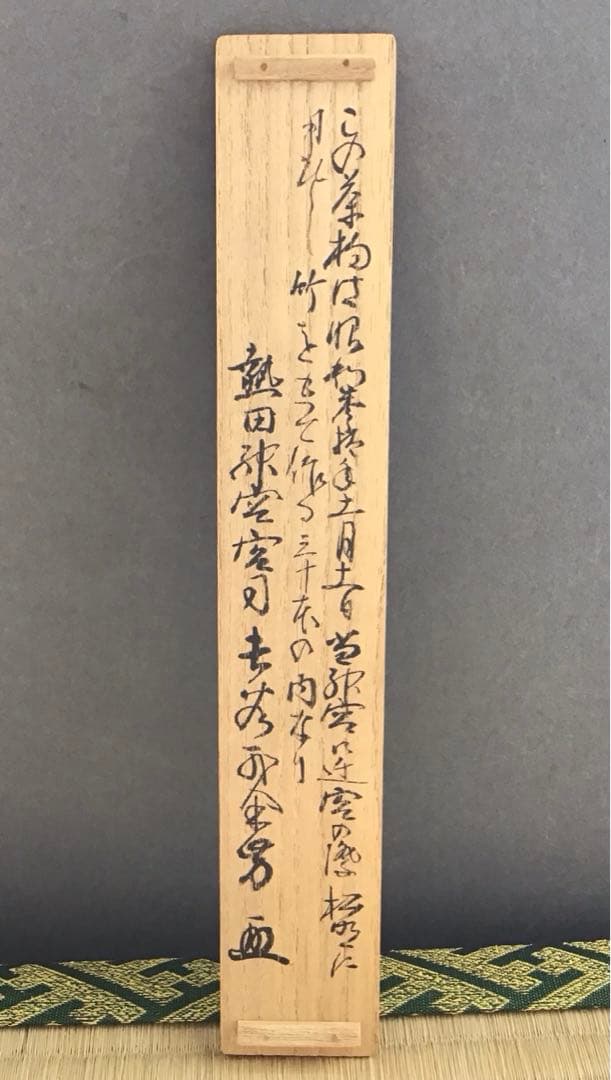 この茶杓は昭和参拾年十一月十一日当神宮に遷宮の際松明に
用ひし竹をもつて作る三十本の内なり
熱田神宮宮司